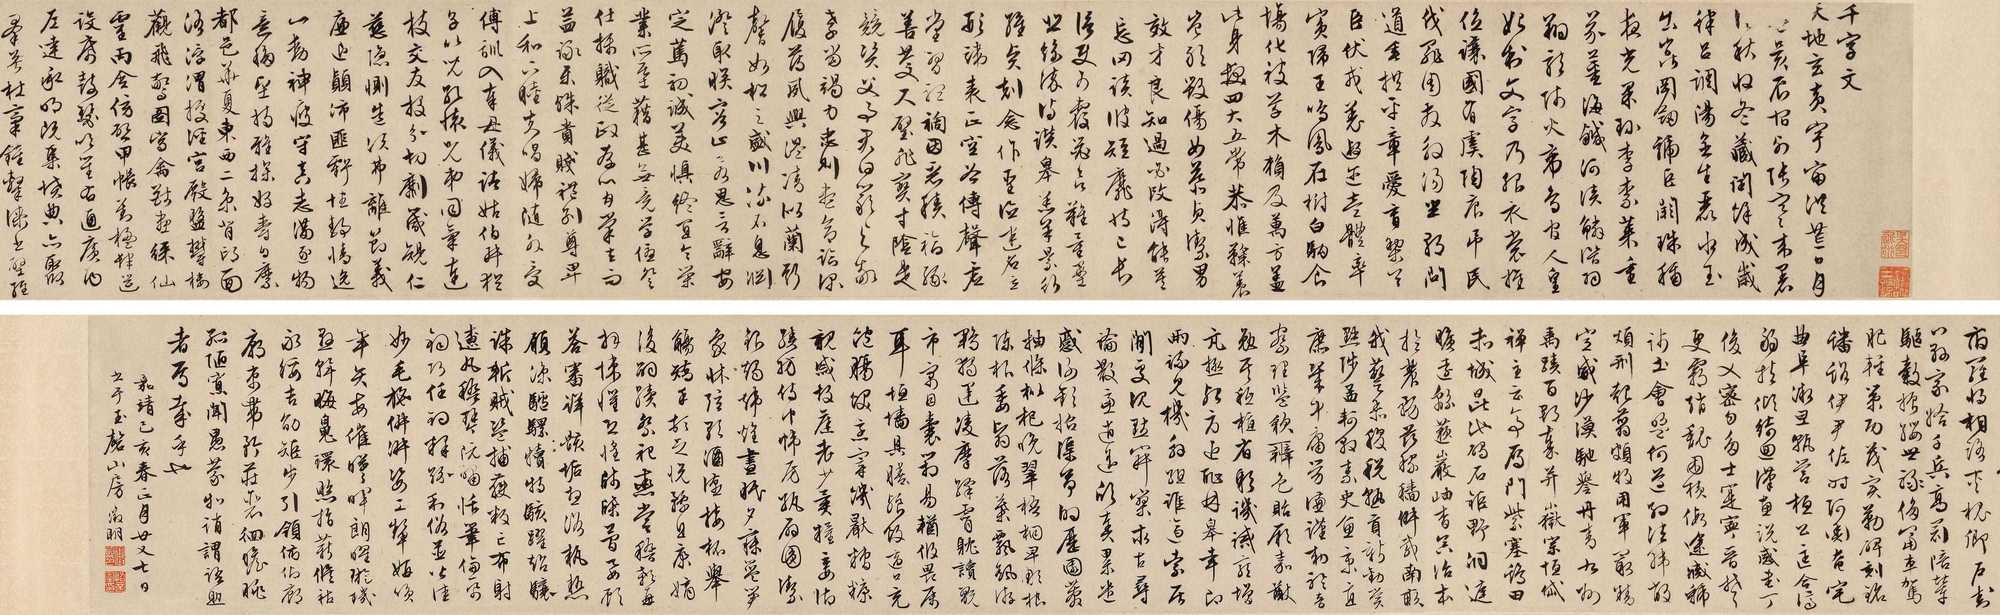 千字文
天地玄黃宇宙洪荒日月
盈昃辰宿列張寒來暑
往秋收冬藏閏餘成歲
律呂調陽金生麗水玉
出崑岡劍號巨闕珠稱
夜光果珍李柰菜重
芥薑海鹹河淡鱗潛羽
翔龍師火帝鳥官人皇
始制文字乃服衣裳推
位讓國有虞陶唐弔民
伐罪周發殷湯坐朝問
道垂拱平章愛育黎首
臣伏戎羌遐邇壹體率
賓歸王鳴鳳在樹白駒食
場化被草木賴及萬方蓋
此身髮四大五常恭惟鞠養
豈敢毀傷女慕貞潔男
效才良知過必改得能莫
忘罔談彼短靡恃己長
信使可覆器欲難量墨
悲絲染詩讚羔羊景行
維賢剋念作聖德建名立
形端表正空谷傳聲虛
堂習聽禍因惡積福緣
善慶尺璧非寶寸陰是
競資父事君曰嚴與敬
孝當竭力忠則盡命臨深
履薄夙興溫凊似蘭斯
馨如松之盛川流不息淵
澄取暎容止若思言辭安
定篤初誠美慎終宜令榮
業所基籍甚無竟學優登
仕攝職從政存以甘棠去而
益詠樂殊貴賤禮別尊卑
上和下睦夫唱婦隨外受
傅訓入奉母儀諸姑伯叔猶
子比兒孔懷兄弟同氣連
枝交友投分切磨箴規仁
慈隱惻造次弗離節義
廉退顛沛匪虧性靜情逸
心動神疲守真志滿逐物
意移堅持雅操好爵自縻
都邑華夏東西二京背邙面
洛浮渭據涇宮殿盤鬱樓
觀飛驚圖寫禽獸畫綵仙
靈丙舍傍啟甲帳對楹肆筵
設席鼓瑟吹笙右通廣內
左達承明既集墳典亦聚
群英杜稾鍾隸漆書壁經
府羅將相路俠槐卿戶封
八縣家給千兵高冠陪輦
驅轂振纓世祿侈富車駕
肥輕策功茂實勒碑刻銘
磻溪伊尹佐時阿衡奄宅
曲阜微旦孰營桓公匡合濟
弱扶傾綺迴漢惠說感武丁
俊乂密勿多士寔寧晉楚
更霸趙魏困橫假途滅虢
踐土會盟何遵約法韓弊
煩刑起翦頗牧用軍最精
宣威沙漠馳譽丹青九州
禹蹟百郡秦并嶽宗恒岱
禪主云亭雁門紫塞雞田
赤城昆池碣石鉅野洞庭
曠遠緜邈巖岫杳冥治本
於農務茲稼穡俶載南畝
我藝黍稷稅熟貢新勸賞
黜陟孟軻敦素史魚秉直
庶幾中庸勞謙謹勑聆音
察理鑒貌辨色貽厥嘉猷
勉其祗植省躬譏誡寵增
抗極殆辱近恥林皋幸即
兩疏見機解組誰逼索居
閒處沈默寂寥求古尋
論散慮逍遙欣奏累遣
慼謝歡招渠荷的歷園莽
抽條枇杷晚翠梧桐早凋
陳根委翳落葉飄颻遊
鵾獨運凌摩絳霄耽讀翫
市寓目囊箱易輶攸畏屬
耳垣墻具膳飡飯適口充
腸飽飫烹宰飢厭糟糠
親戚故舊老少異糧妾御
績紡侍巾帷房紈扇圓潔
銀燭煒煌晝眠夕寐藍筍
象床絃歌酒讌接杯舉
觴矯手頓足悅豫且康嫡
後嗣續祭祀蒸嘗稽顙再
拜悚懼恐惶牋牒簡要顧
答審詳骸垢想浴執熱
願涼驢騾犢特駭躍超驤
誅斬賊盜捕獲叛亡布射
遼丸嵇琴阮嘯恬筆倫紙
鈞巧任釣釋紛利俗並皆佳
妙毛施淑姿工顰妍笑
年矢每催曦暉朗曜璇璣
懸斡晦魄環照指薪修祜
永綏吉劭矩步引領俯仰廊
廟束帶矜莊徘徊瞻眺
孤陋寡聞愚蒙等誚謂語助
者焉哉乎也
嘉靖己亥春正月廿又七日
書于玉磬山房徵明